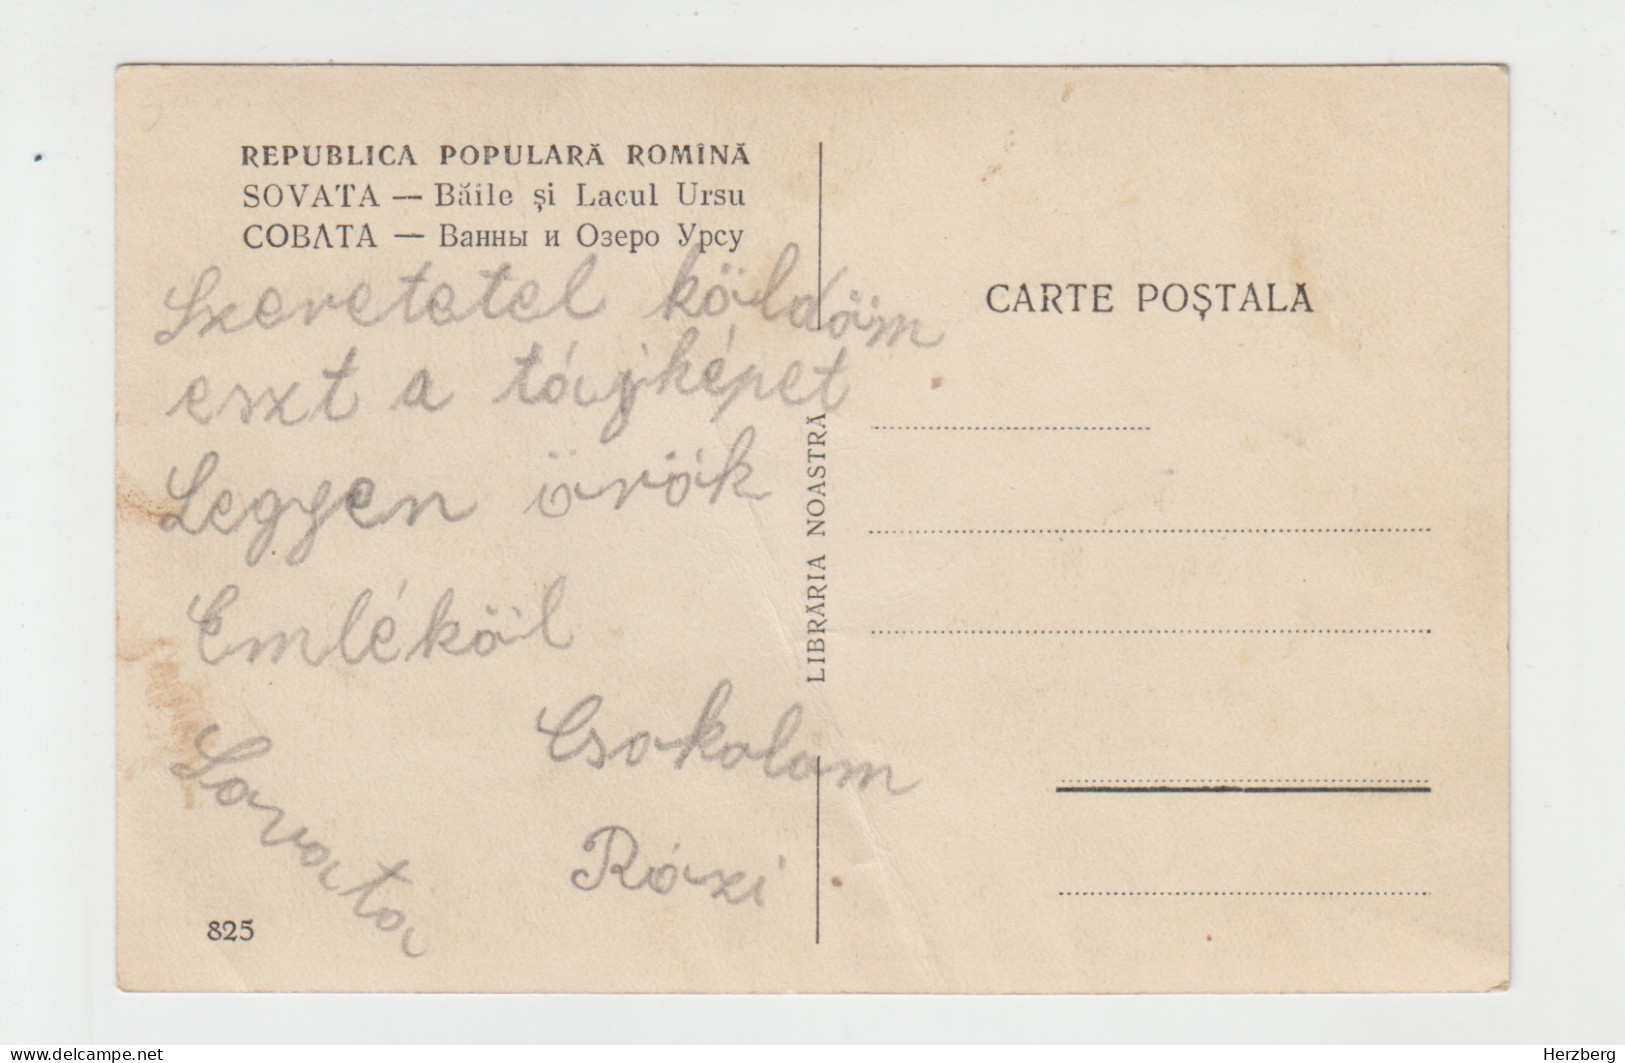 REPUBLICA POPULARĂ ROMÎNĂ
SOVATA — Băile și Lacul Ursu
СОВАТА — Ванны и Озеро Урсу
Szeretetel köldöm
eszt a tájképet
Legyen örök
Emléköl
Csokolom
Rózi
Sovata
825
LIBRĂRIA NOASTRĂ
CARTE POȘTALĂ
www.delcampe.net
Herzberg